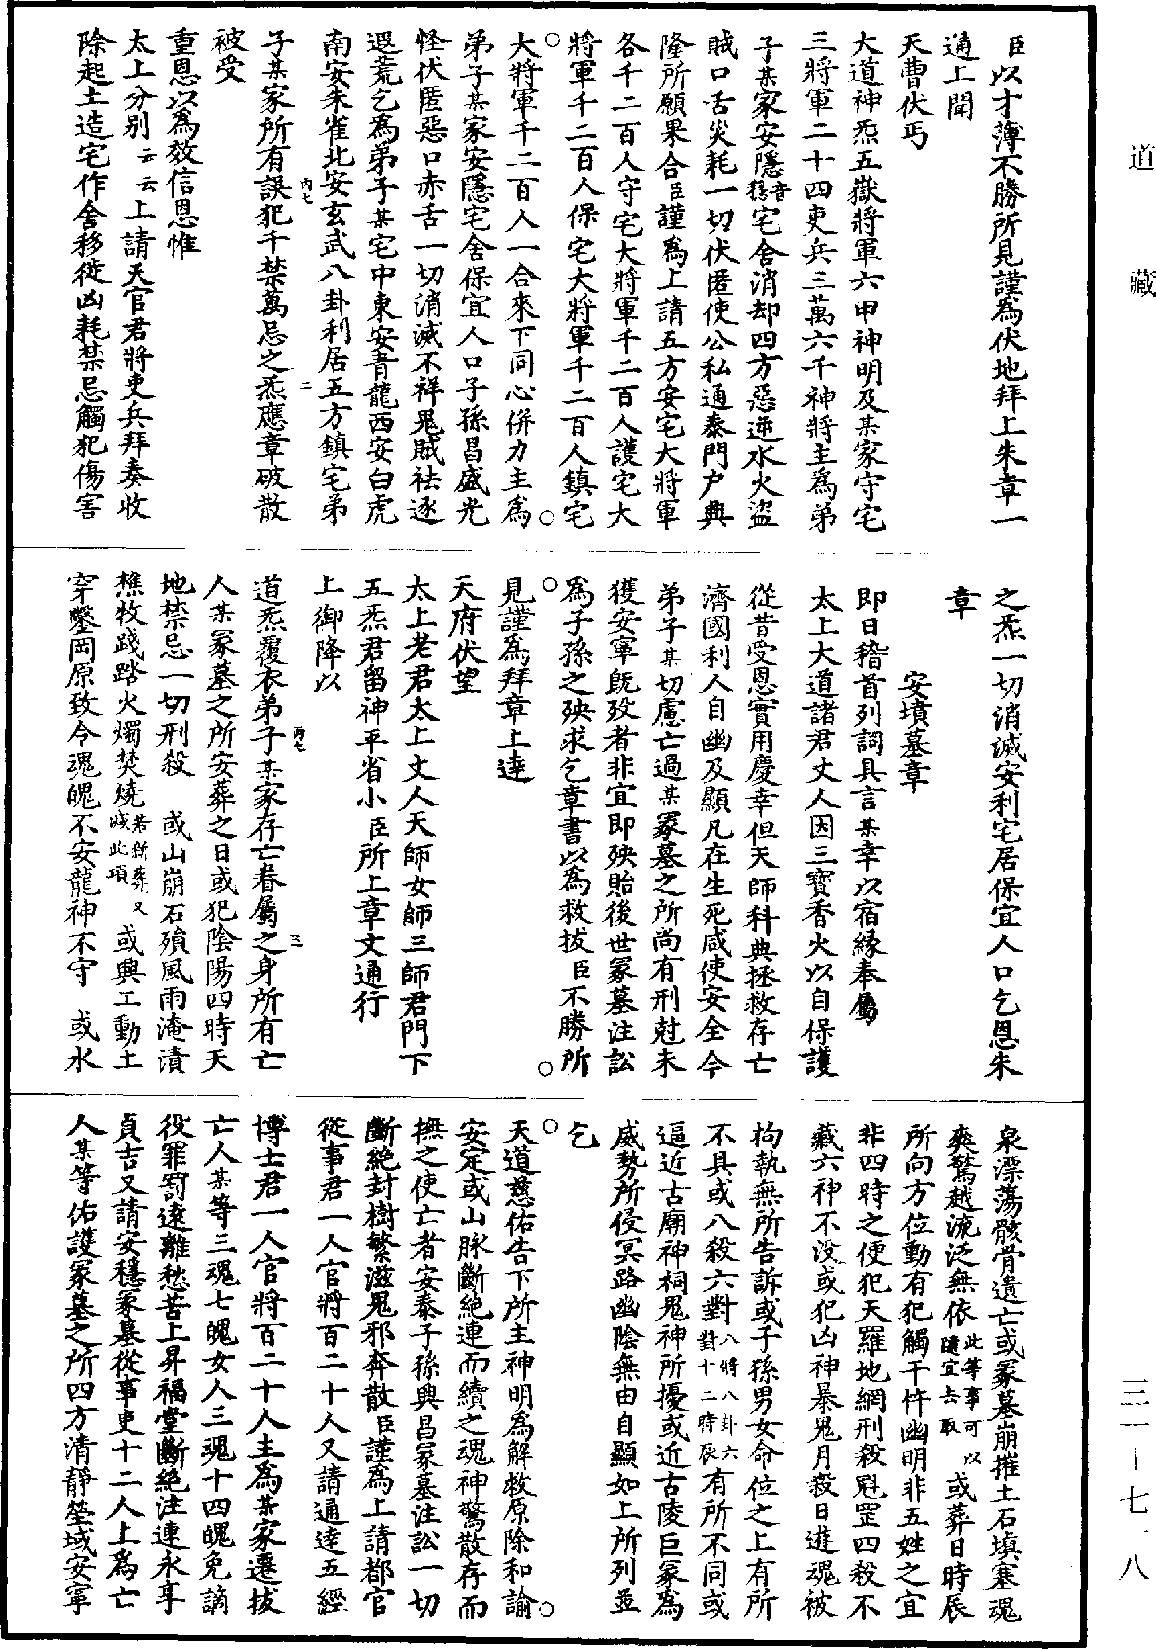 道藏
臣以才薄不勝所見謹為伏地拜上朱章一
通上聞
天曹伏丐
大道神炁五嶽將軍六甲神明及某家守宅
三將軍二十四吏兵三萬六千神將主為弟
子某家安隱音穩宅舍消却四方惡逆水火盜
賊口舌災耗一切伏匿使公私通泰門戶興
隆所願果合臣謹為上請五方安宅大將軍
各千二百人守宅大將軍千二百人護宅大
將軍千二百人保宅大將軍千二百人鎮宅
大將軍千二百人一合來下同心併力主為
弟子某家安隱宅舍保宜人口子孫昌盛光
怪伏匿惡口赤舌一切消滅不祥鬼賊袪逐
遐荒乞為弟子某宅中東安青龍西安白虎
南安朱雀北安玄武八卦利居五方鎮宅弟
二
子某家所有誤犯千禁萬忌之炁應章破散
丙七
被受
重恩以為效信恩惟
太上分別云云上請天官君將吏兵拜奏收
除起土造宅作舍移徙凶耗禁忌觸犯傷害
之炁一切消滅安利宅居保宜人口乞恩朱
章
安墳墓章
即日稽首列詞具言某幸以宿緣奉屬
太上大道諸君丈人因三寶香火以自保護
從昔受恩實用慶幸但天師科典拯救存亡
濟國利人自幽及顯凡在生死咸使安全今
弟子某切慮亡過某冢墓之所尚有刑尅未
獲安寧既歿者非宜即殃貽後世冢墓注訟
為子孫之殃求乞章書以為救拔臣不勝所
見謹為拜章上達
天府伏望
太上老君太上丈人天師女師三師君門下
五炁君留神平省小臣所上章文通行
上御降以
道炁覆衣弟子某家存亡眷屬之身所有亡
丙七
三
人某冢墓之所安葬之日或犯陰陽四時天
地禁忌一切刑殺 或山崩石殞風雨淹漬
樵牧踐踏火燭焚燒若新葬又減此項 或興工動土
穿鑿岡原致今魂魄不安龍神不守 或水
泉漂蕩骸骨遺亡或冢墓崩摧土石填塞魂
爽驚越流泛無依此等事可以隨宜去取 或葬日時辰
所向方位動有犯觸干忤幽明非五姓之宜
非四時之便犯天羅地網刑殺魁罡四殺不
藏六神不沒或犯凶神暴鬼月殺日遊魂被
拘執無所告訴或子孫男女命位之上有所
不具或八殺六對八將八卦六對十二時辰有所不同或
逼近古廟神祠鬼神所擾或近古陵巨冢為
威勢所侵冥路幽陰無由自顯如上所列並
乞
天道慈佑告下所主神明為解救原除和諭
安定或山脉斷絕連而續之魂神驚散存而
撫之使亡者安泰子孫興昌冢墓注訟一切
斷絕封樹繁滋鬼邪奔散臣謹為上請都官
從事君一人官將百二十人又請通達五經
博士君一人官將百二十人主為某家遷拔
亡人某等三魂七魄女人三魂十四魄免謫
役罪罰遠離愁苦上昇福堂斷絕注連永享
貞吉又請安穩冢墓從事吏十二人上為亡
人某等佑護冢墓之所四方清靜塋域安寧
三一—七、八